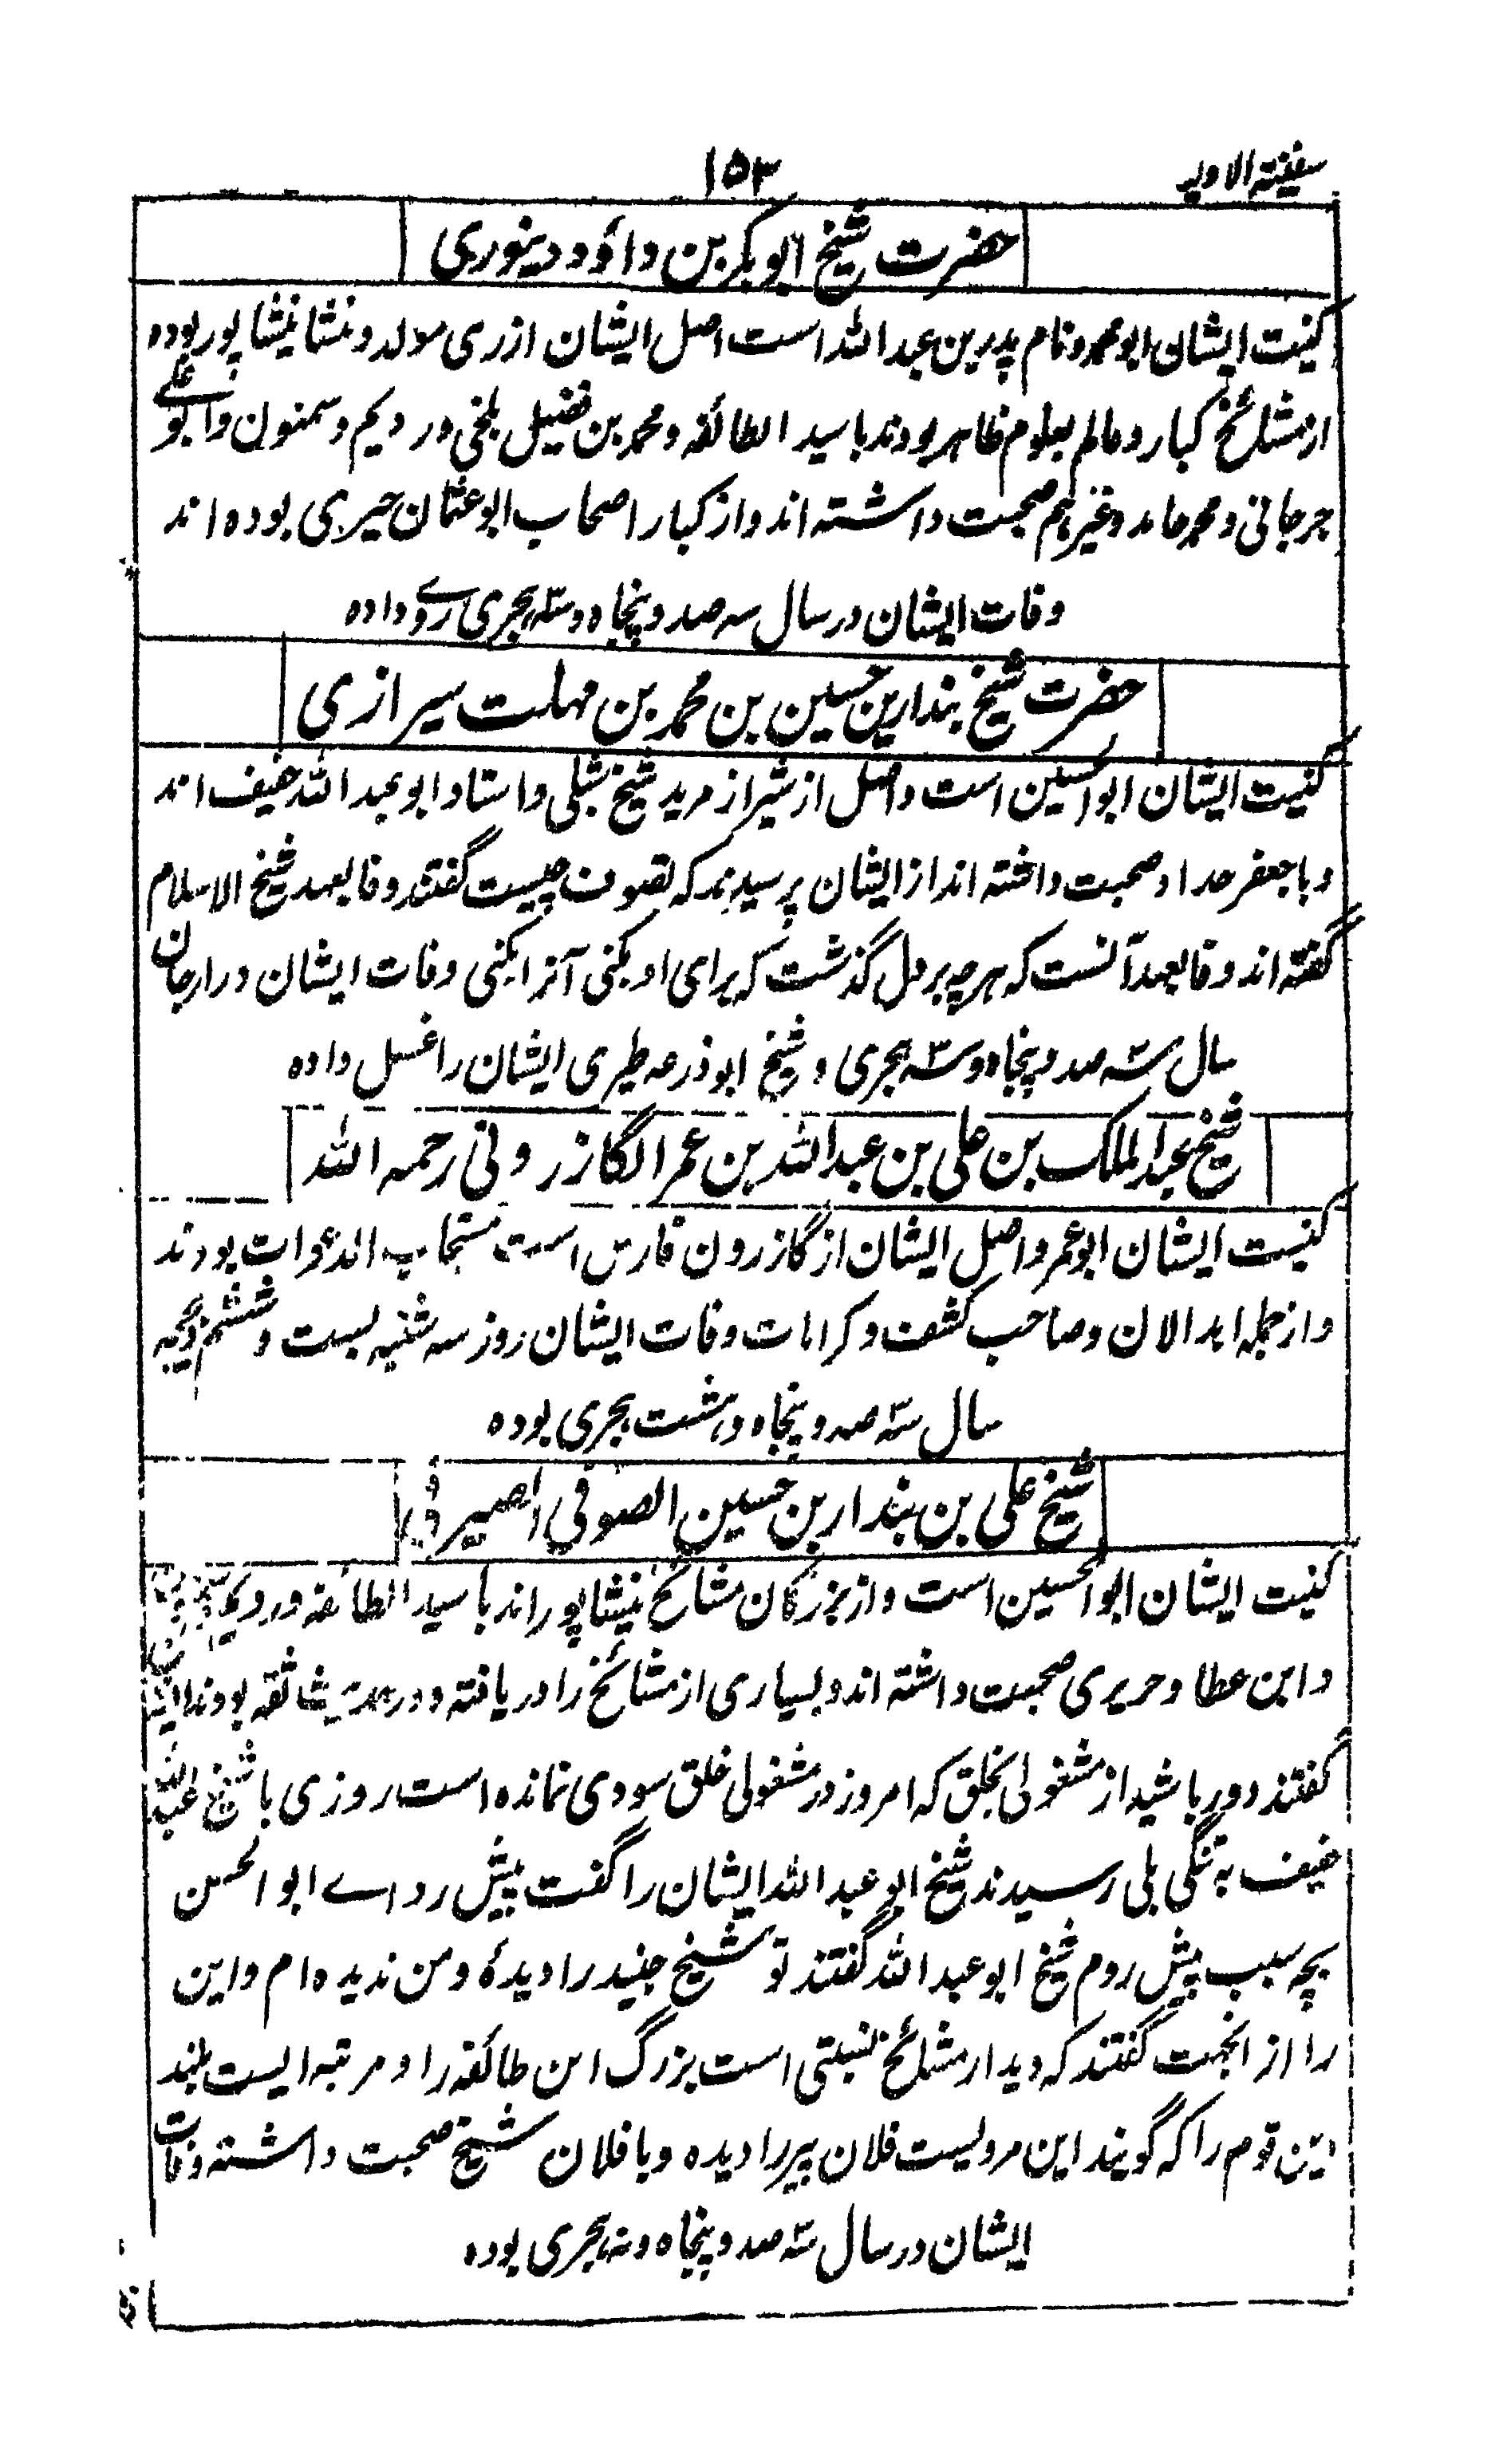 سفینته الاولیـ
۱۵۳
حضرت شیخ ابو بکر بن داؤد دینوری
کنیت ایشان ابو محمد و نام پدر بن عبد الله است اصل ایشان از ری مولد و منشا نیشاپور بوده
از مشائخ کبار و عالم بعلوم ظاهر بودند با سید الطائفه و محمد بن فضیل بلخی و ر دیم و سمنون و ابو علی
جرجانی و محمد حامد و غیرهم صحبت داشته اند و از کبار اصحاب ابو عثمان حیری بوده اند
وفات ایشان در سال سه صد و پنجاه و سه هجری روے داده
حضرت شیخ بندار بن حسین بن محمد بن مهلت سیرازی
کنیت ایشان ابو الحسین است و اصل از شیراز مرید شیخ شبلی و استاد ابو عبد الله خفیف اند
و با جعفر حداد صحبت داشته اند از ایشان پرسیدند که تصوف چیست گفتند وفا بعهد شیخ الاسلام
گفته اند وفا بعهد آنست که هر چه بر دل گذشت که برای او بکنی آنرا بکنی وفات ایشان در ارجان
سال سه صد و پنجاه و سه هجری و شیخ ابو ذرعه طبری ایشان را غسل داده
شیخ عبد الملک بن علی بن عبد الله بن عمر الگازرونی رحمه الله
کنیت ایشان ابو عمر و اصل ایشان از گازرون فارس است مستجاب الدعوات بودند
و از جمله ابدالان و صاحب کشف و کرامات وفات ایشان روز سه شنبه بست و ششم ذیحجه
سال سه صد و پنجاه و هشت هجری بوده
شیخ علی بن بندار بن حسین الصوفی الصیرفی
کنیت ایشان ابو الحسین است و از بزرگان مشائخ نیشاپور اند با سید الطائفه و رویم
و ابن عطا و حریری صحبت داشته اند و بسیاری از مشائخ را دریافته و در حدیث ثقه بودند ایشان
گفتند دور باشید از مشغولی بخلق که امروز در مشغولی خلق سودی نمانده است روزی با شیخ عبد الله
خفیف به تنگی پلی رسیدند شیخ ابو عبد الله ایشان را گفت پیش رو اے ابو الحسن
بچه سبب پیش روم شیخ ابو عبد الله گفتند تو شیخ جنید را دیدۀ و من ندیده ام و این
را از انجهت گفتند که دیدار مشائخ نسبتی است بزرگ این طائفه را و مرتبه ایست بلند
دین قوم را که گویند این مردیست فلان پیر را دیده و با فلان شیخ صحبت داشته وفات
ایشان در سال سه صد و پنجاه و نه هجری بوده